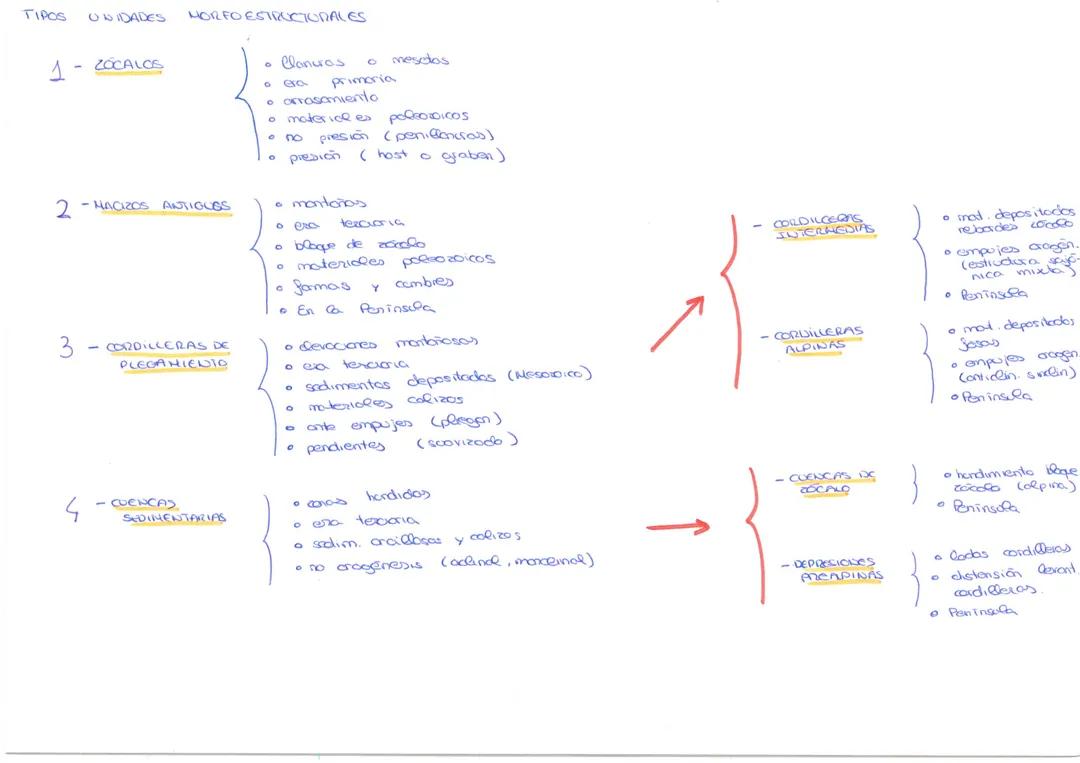 TIPOS UNIDADES MORFOESTRUCTURALES
1 - ZÓCALOS
• llanuras o mesetas
• era primaria
• arrasamiento
• materiales paleozoicos
• no presión (penillanuras)
• presión (host o graben)
2 - MACIZOS ANTIGUOS
• montañas
• era terciaria
• bloque de zócalo
• materiales paleozoicos
• formas y cumbres
• En la Península
3 - CORDILLERAS DE
PLEGAMIENTO
• elevaciones montañosas
• era terciaria
• sedimentos depositados (MESOZOICO)
• materiales calizos
• ante empujes (pliegan)
• pendientes (suavizado)
- CORDILLERAS
INTERMEDIAS
• mat. depositados
rebordes zócalo
• empujes orogén.
(estructura sajó-
nica mixta)
• Península
- CORDILLERAS
ALPINAS
• mat. depositados
fosas
• empujes orogén.
(anticlin. sinclin)
• Península
4 - CUENCAS
SEDIMENTARIAS
• zonas hundidas
• era terciaria
• sedim. arcillosos y calizos
• no orogénesis (aclinal, monoclinal)
- CUENCAS DE
ZÓCALO
• hundimiento bloque
zócalo (alpina)
• Península
- DEPRESIONES
PREALPINAS
• lados cordilleras
• distensión levant.
cordilleras.
• Península